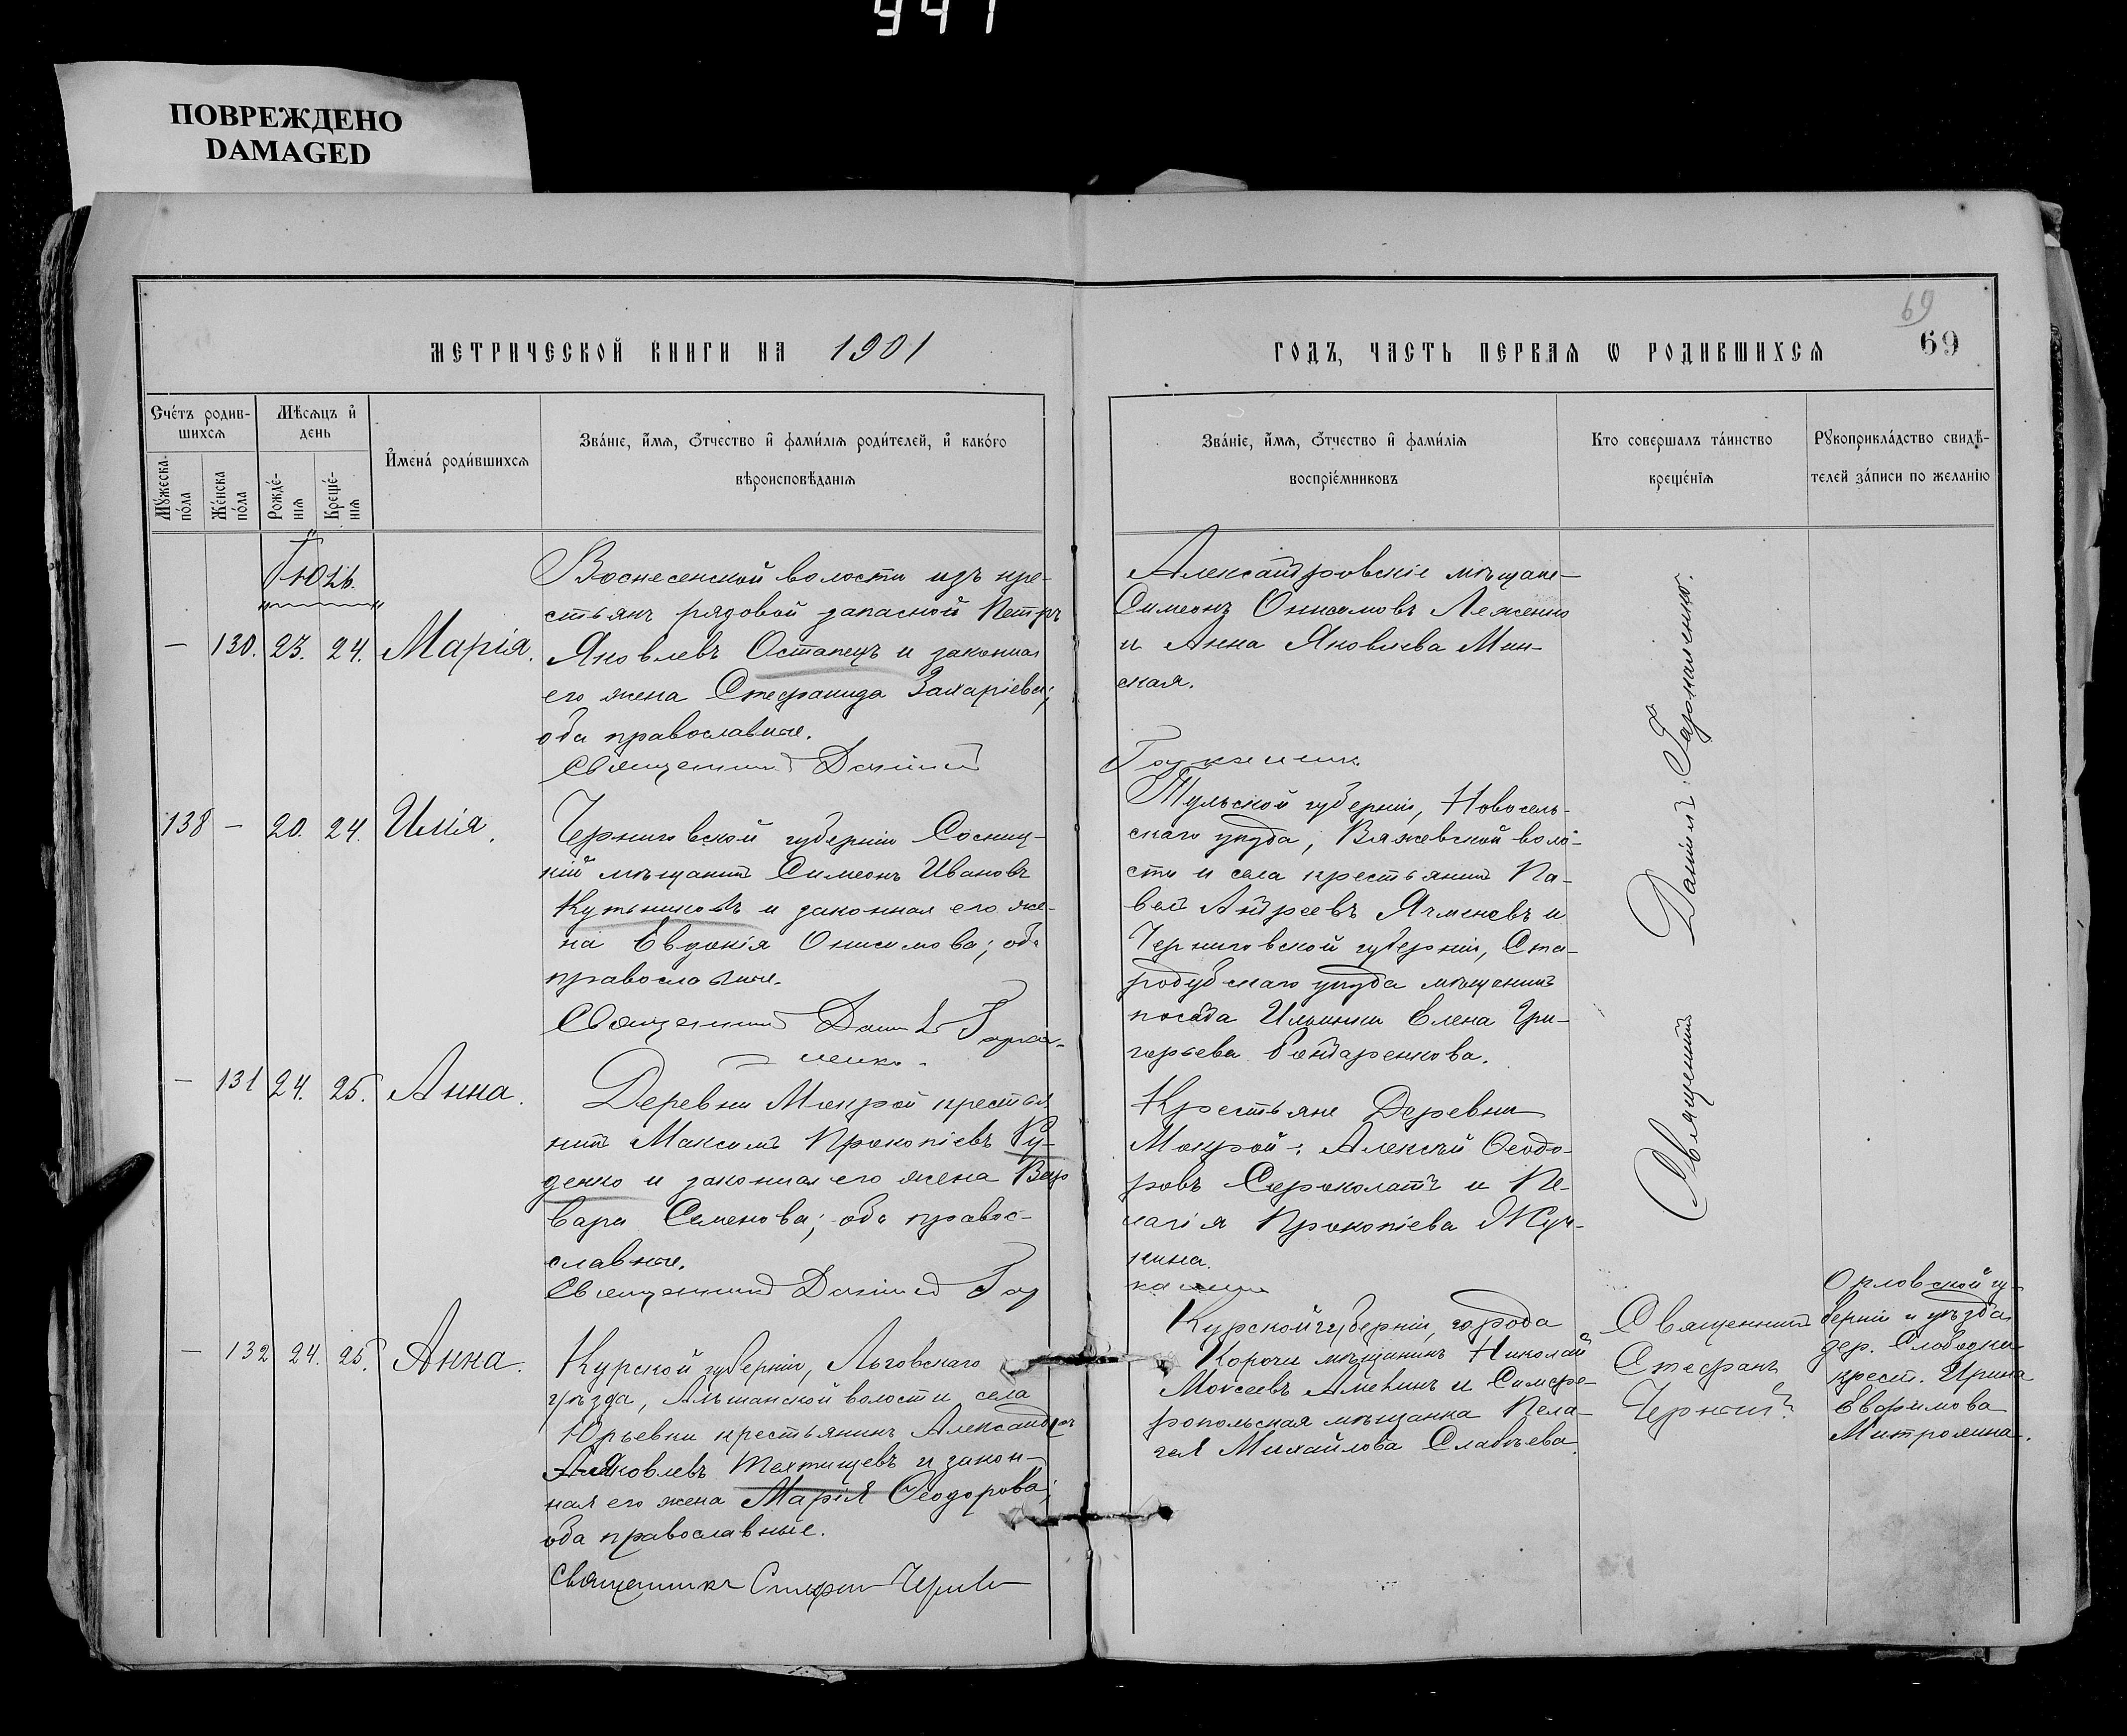 941
ПОВРЕЖДЕНО
DAMAGED
МЕТРИЧЕСКОЙ КНИГИ НА 1901
ГОДЪ, ЧАСТЬ ПЕРВАЯ Ѡ РОДИВШИХСЯ
69
69
Счетъ родив-
шихся
Мѣсяцъ и
день
Имена родившихся
Званіе, имя, отчество и фамилія родителей, и какого
вѣроисповѣданія
Мужеска
пола
Женска
пола
Рожде-
нія
Креще-
нія
Званіе, имя, отчество и фамилія
воспріемниковъ
Кто совершалъ таинство
крещенія
Рукоприкладство свидѣ-
телей записи по желанію
— 130. 23. 24. Марія.
Вознесенской волости изъ кре-
стьянъ рядовой запасной Петръ
Яковлевъ Остапецъ и законная
его жена Стефанида Захаріева;
оба православные.
Священникъ Даніилъ
Александровскіе мѣщане
Симеонъ Онисимовъ Леженко
и Анна Яковлева Мин-
ская.
Гармашенко
138 — 20. 24. Илія.
Черниговской губерніи Сосниц-
кій мѣщанинъ Симеонъ Ивановъ
Кутниковъ и законная его же-
на Евдокія Онисимова; оба
православные.
Священникъ Даніилъ Гарма-
шенко.
Тульской губерніи, Новосель-
скаго уѣзда, Вяжевской воло-
сти и села крестьянинъ Па-
велъ Андреевъ Ячменевъ и
Черниговской губерніи, Ста-
родубскаго уѣзда мѣщанинъ
посада Ильинки Елена Гри-
горьева Бондаренкова.
— 131 24. 25. Анна.
Деревни Мокрой крестья
нинъ Максимъ Прокопіевъ Ру-
денко и законная его жена Вар
вара Семенова; оба правос-
славные.
Священникъ Даніилъ Гар
Крестьяне Деревни
Мокрой: Алексѣй Ѳеодо-
ровъ Сероколатъ и Пе-
лагія Прокопіева Жуч-
кина.
Священникъ Даніилъ Гармашенко.
— 132 24. 25. Анна.
Курской губерніи, Льговскаго
уѣзда, Льшанской волости села
Юрьевки крестьянинъ Александръ
Яковлевъ Техтищевъ и закон-
ная его жена Марія Ѳеодорова;
оба православные.
Священникъ Стефанъ Черный
Курской губерніи, города
Корочи мѣщанинъ Николай
Моисеевъ Амелинъ и Симфе-
ропольская мѣщанка Пела-
гея Михайлова Слабѣева.
Священникъ
Стефанъ
Черный
Орловской гу-
берніи и уѣзда
дер. Слободки
крест. Ирина
Евфимова
Митрохина.